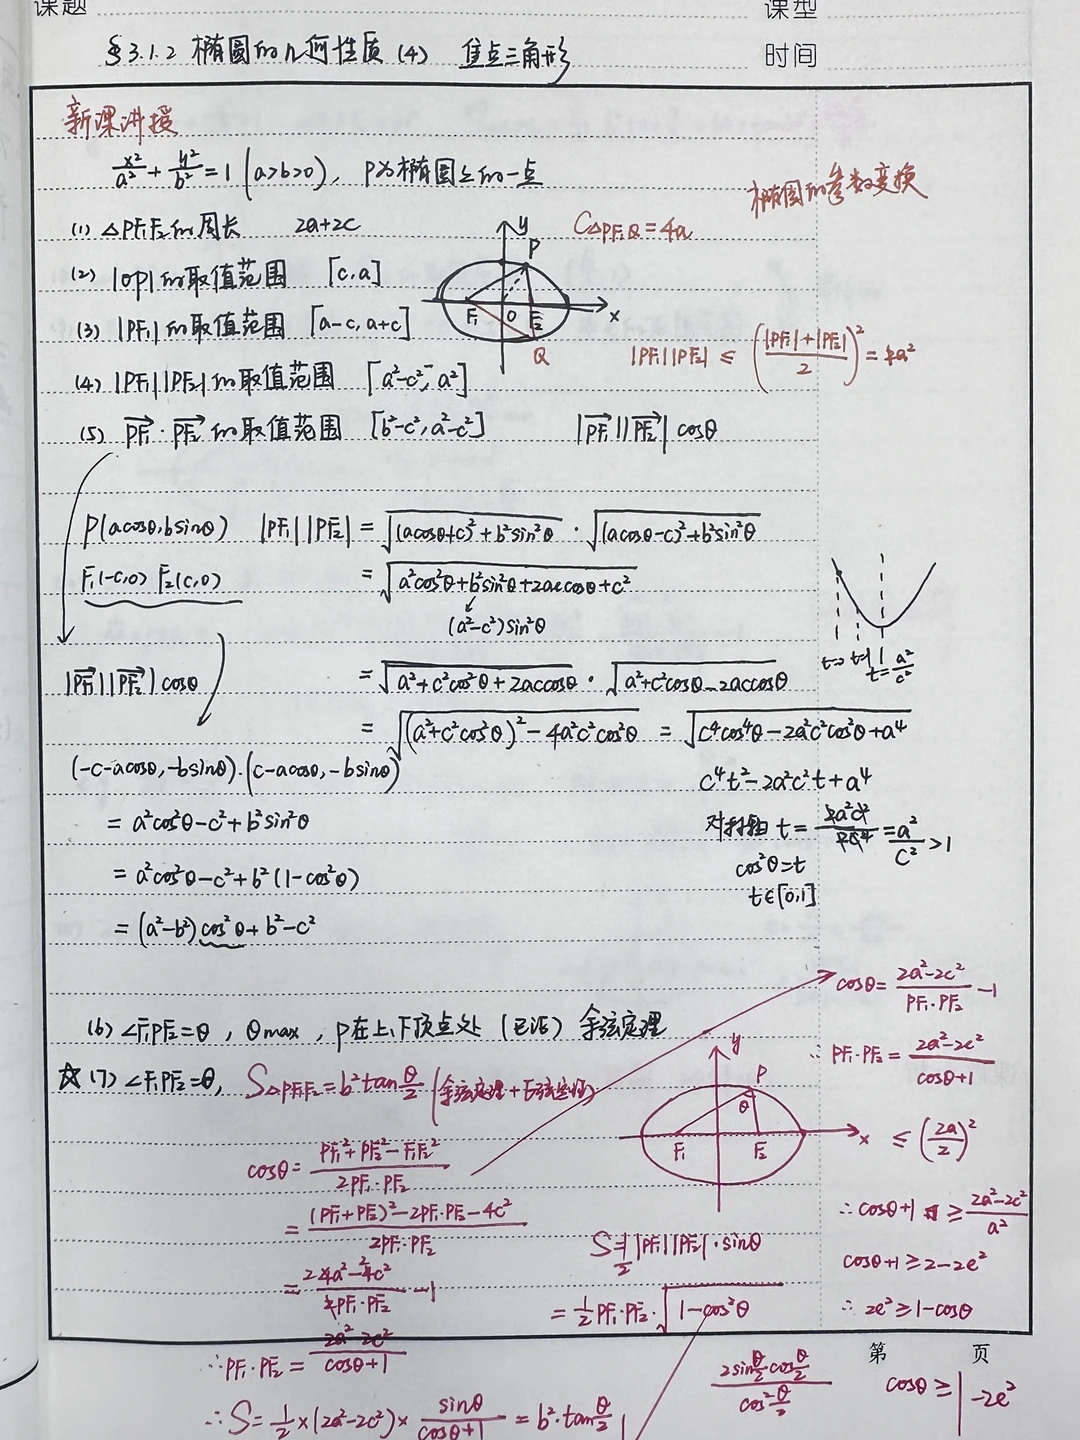 课题
课型
§3.1.2 椭圆的几何性质 (4) 焦点三角形
时间
新课讲授
x²/a² + y²/b² = 1 (a>b>0), P为椭圆上的一点
椭圆的参数变换
(1) △PF₁F₂的周长 2a+2c
C△PF₁Q = 4a
(2) |OP|的取值范围 [c,a]
(3) |PF₁|的取值范围 [a-c,a+c]
y
P
F₁ O F₂ x
Q
|PF₁||PF₂| ≤ ((|PF₁|+|PF₂|)/2)² = a²
(4) |PF₁||PF₂|的取值范围 [a²-c², a²]
(5) PF₁·PF₂的取值范围 [b²-c², a²-c²] |PF₁||PF₂|cosθ
P(acosθ,bsinθ) |PF₁||PF₂| = √((acosθ+c)²+b²sin²θ) · √((acosθ-c)²+b²sin²θ)
F₁(-c,0) F₂(c,0) = √(a²cos²θ+b²sin²θ+2accosθ+c²)
(a²-c²)sin²θ
t=0 t=1 t=a²/c²
|PF₁||PF₂|cosθ = √(a²+c²cos²θ+2accosθ) · √(a²+c²cosθ-2accosθ)
= √((a²+c²cos²θ)²-4a²c²cos²θ) = √(c⁴cos⁴θ-2a²c²cos²θ+a⁴)
(-c-acosθ,-bsinθ)·(c-acosθ,-bsinθ)
c⁴t²-2a²c²t+a⁴
= a²cos²θ-c²+b²sin²θ
对称轴 t = 2a²c²/2c⁴ = a²/c² >1
= a²cos²θ-c²+b²(1-cos²θ)
cos²θ=t
t∈[0,1]
= (a²-b²)cos²θ+b²-c²
cosθ = (2a²-2c²)/(PF₁·PF₂) -1
(6) ∠F₁PF₂=θ, θmax, P在上、下顶点处 (已证) 余弦定理
∴ PF₁·PF₂ = (2a²-2c²)/(cosθ+1)
☆(7) ∠F₁PF₂=θ, S△PF₁F₂=b²tan θ/2 (余弦定理+正弦定理)
y
P
θ
F₁ F₂ x
≤ (2a/2)²
cosθ = (PF₁²+PF₂²-F₁F₂²)/(2PF₁·PF₂)
= ((PF₁+PF₂)²-2PF₁·PF₂-4c²)/(2PF₁·PF₂)
∴ cosθ+1 ≥ (2a²-2c²)/a²
S=1/2|PF₁||PF₂|·sinθ
cosθ+1≥2-2e²
= (2 4a²-2 4c²)/(2PF₁·PF₂) -1
= 1/2 PF₁·PF₂·√(1-cos²θ)
∴ 2e²≥1-cosθ
∴ PF₁·PF₂ = (2a²-2c²)/(cosθ+1)
第 页
(2sin θ/2 cos θ/2)/(cos² θ/2)
cosθ ≥ 1-2e²
∴ S=1/2×(2a²-2c²)× sinθ/(cosθ+1) = b²·tan θ/2